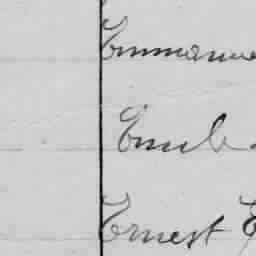 Emmanue
Emile
Ernest E